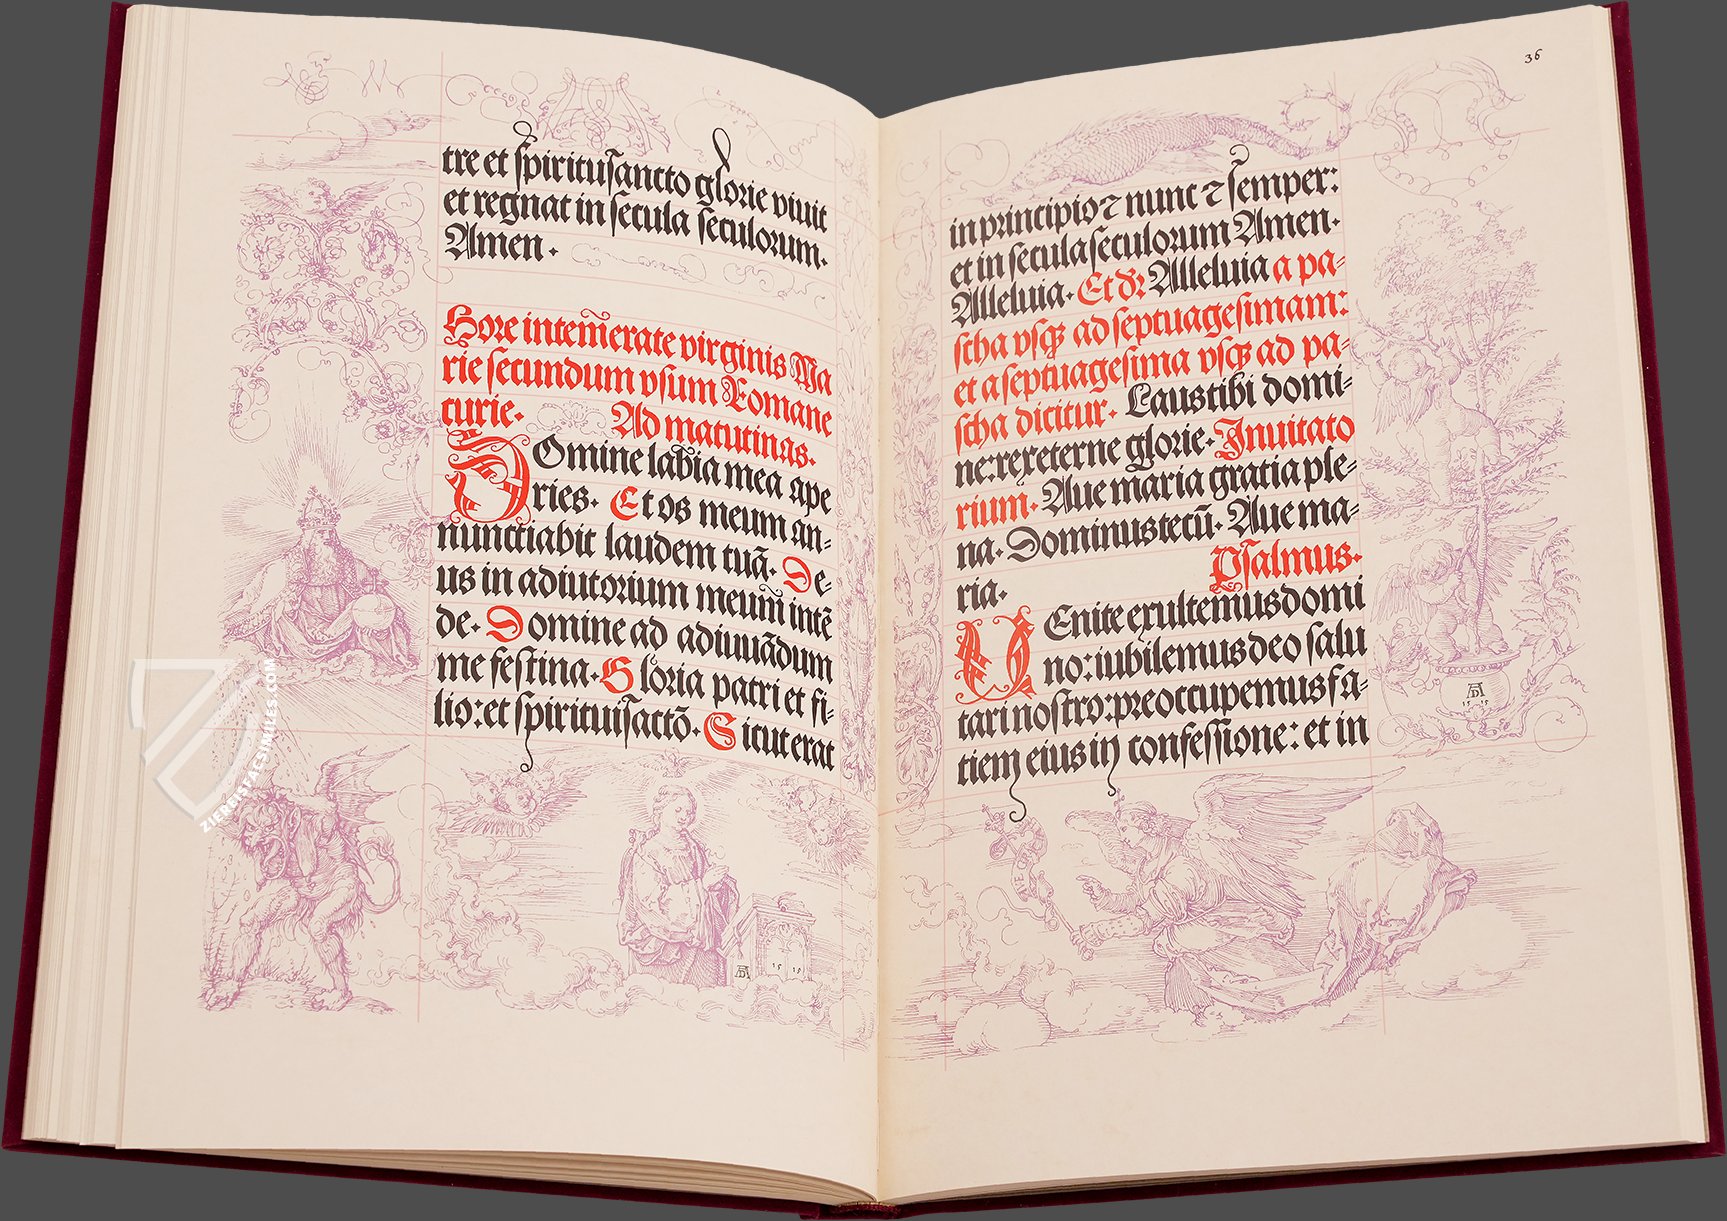 tre et spiritusancto glorie viuit
et regnat in secula seculorum.
Amen.
Hore intem̄erate virginis Ma
rie secundum vsum Romane
curie. Ad matutinas.
Domine labia mea ape
ries. Et os meum an-
nunctiabit laudem tuā. De-
us in adiutorium meum̄ intē
de. Domine ad adiuuādum
me festina. Gloria patri et fi-
lio: et spirituis̄actō. Sicut erat
AD
15 15
36
in principio ⁊ nunc ⁊ semper:
et in secula seculorum Amen.
Alleluia. Et dr̄ Alleluia a pa-
scha vsqꝫ ad septuagesimam:
et a septuagesima vsqꝫ ad pa-
scha dicitur. Laus tibi domi-
ne: rex eterne glorie. Inuitato
rium. Aue maria gratia ple-
na. Dominus tecū. Aue ma-
ria. Psalmus.
VEnite exultemus domi
no: iubilemus deo salu
tari nostro: preoccupemus fa-
ciem eius in confessione: et in
AD
15 15
AVE
ZIEREIS FACSIMILES.COM